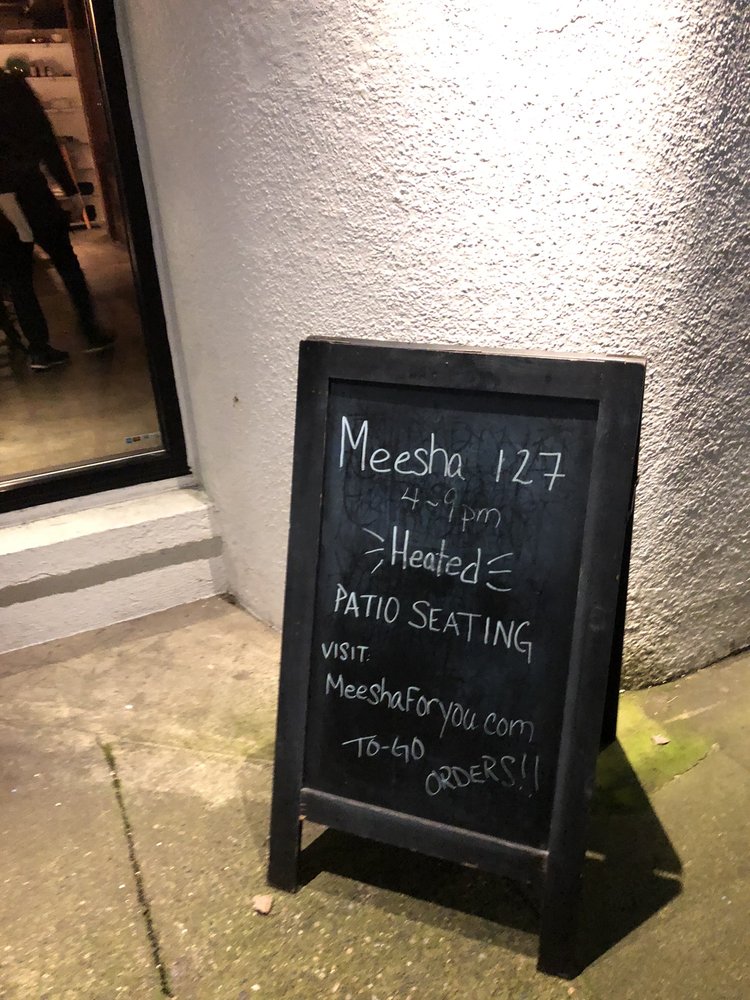 Meesha 127
4~9pm
Heated
PATIO SEATING
VISIT:
MeeshaForyou.com
TO-GO
ORDERS!!